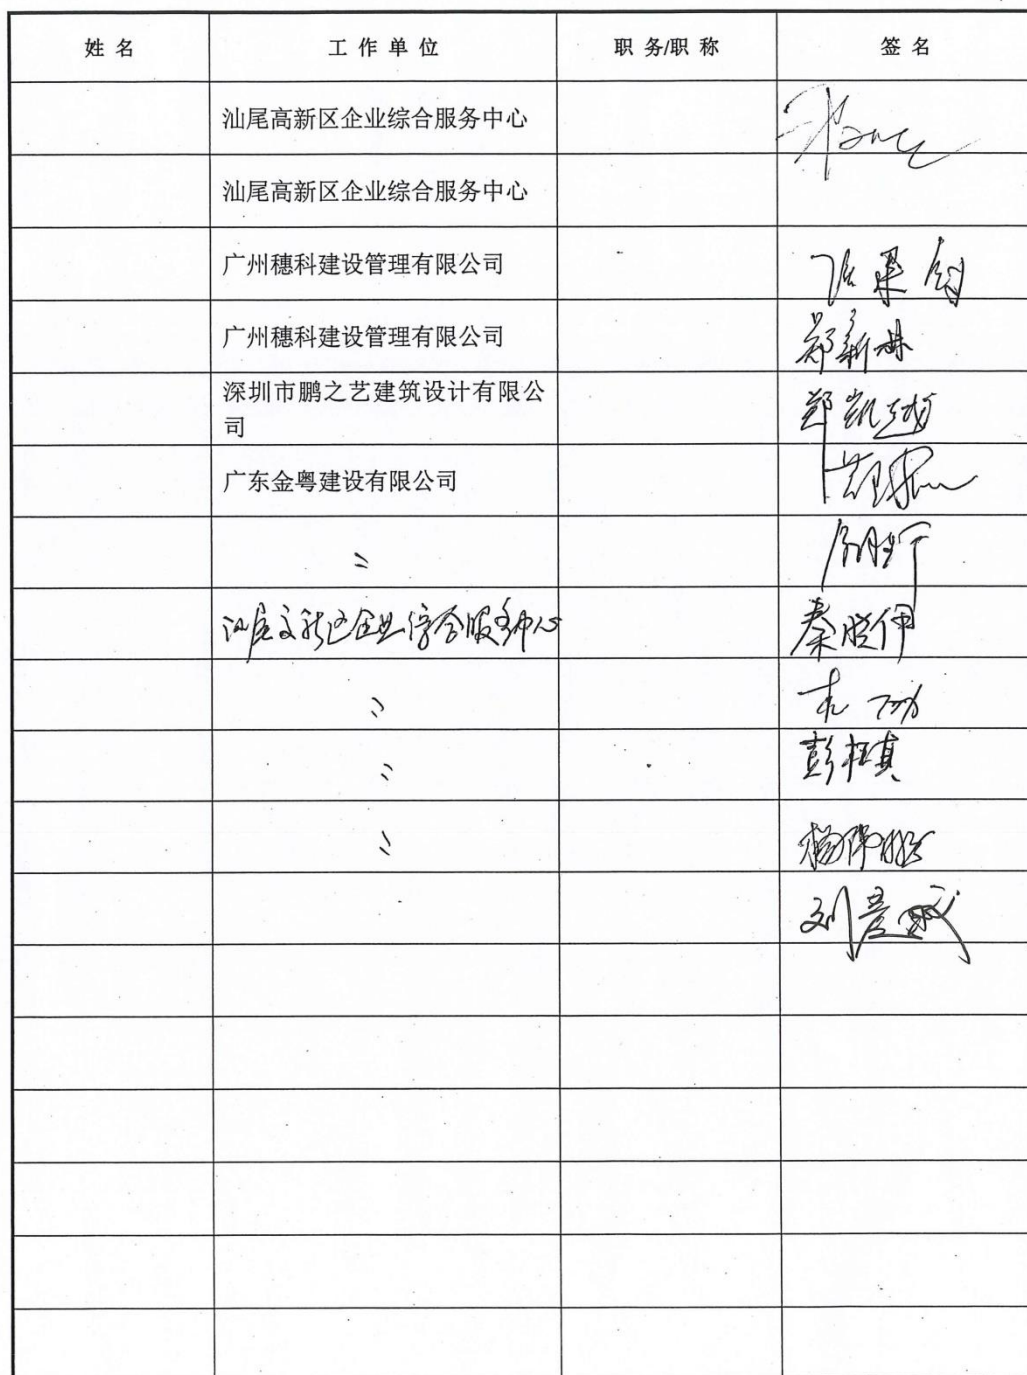 姓 名 工 作 单 位 职 务/职 称 签 名
汕尾高新区企业综合服务中心
汕尾高新区企业综合服务中心
广州穗科建设管理有限公司
广州穗科建设管理有限公司 郑新
深圳市鹏之艺建筑设计有限公
司 郑凯越
广东金粤建设有限公司
〃
汕尾高新区企业综合服务中心 秦晓伟
〃
〃 彭
〃 杨伟
刘彦